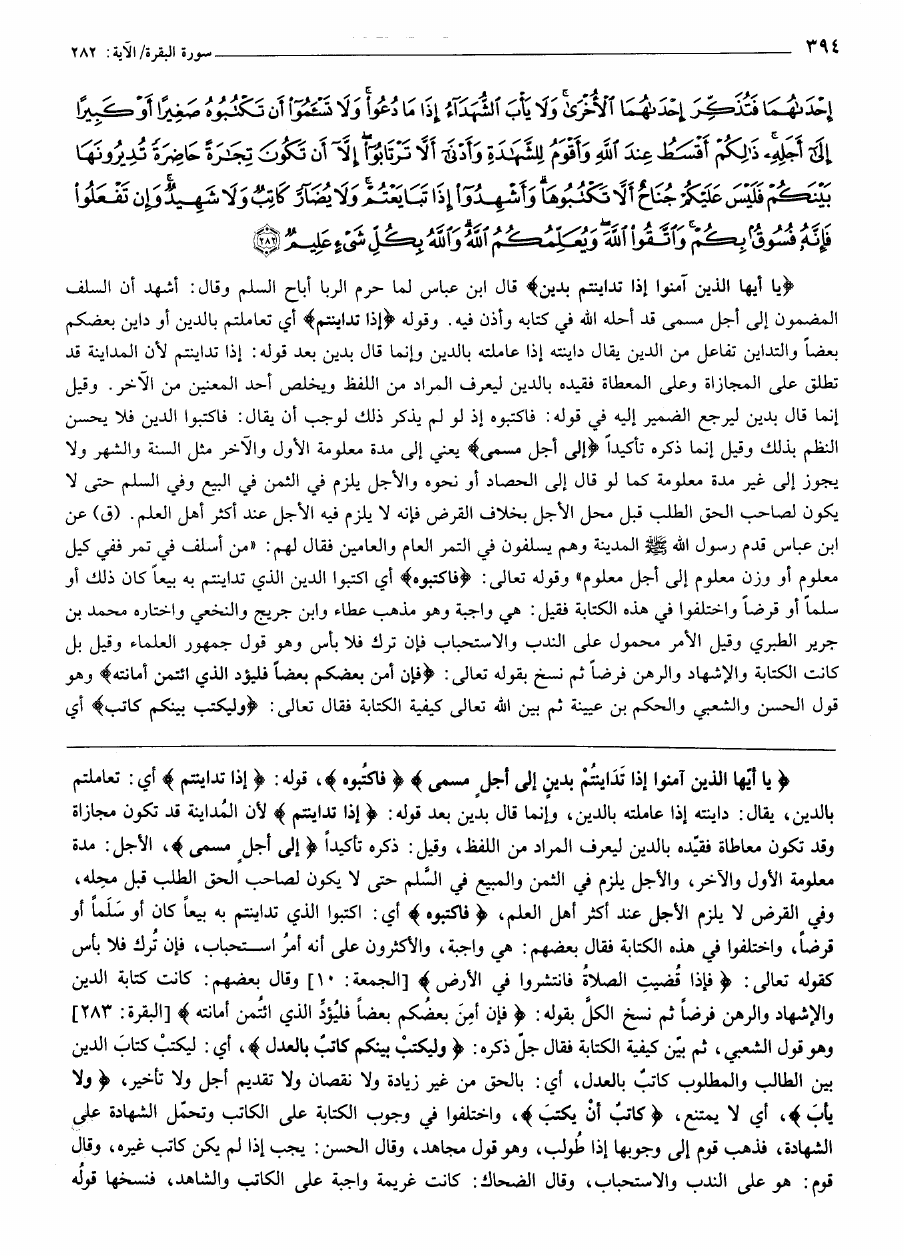 ٣٩٤ سورة البقرة/ الآية: ٢٨٢
إِحْدَىٰهُمَا فَتُذَكِّرَ إِحْدَىٰهُمَا ٱلْأُخْرَىٰ وَلَا يَأْبَ ٱلشُّهَدَآءُ إِذَا مَا دُعُوا۟ وَلَا تَسْـَٔمُوٓا۟ أَن تَكْتُبُوهُ صَغِيرًا أَوْ كَبِيرًا
إِلَىٰٓ أَجَلِهِۦ ذَٰلِكُمْ أَقْسَطُ عِندَ ٱللَّهِ وَأَقْوَمُ لِلشَّهَٰدَةِ وَأَدْنَىٰٓ أَلَّا تَرْتَابُوٓا۟ إِلَّآ أَن تَكُونَ تِجَٰرَةً حَاضِرَةً تُدِيرُونَهَا
بَيْنَكُمْ فَلَيْسَ عَلَيْكُمْ جُنَاحٌ أَلَّا تَكْتُبُوهَا وَأَشْهِدُوٓا۟ إِذَا تَبَايَعْتُمْ وَلَا يُضَآرَّ كَاتِبٌ وَلَا شَهِيدٌ وَإِن تَفْعَلُوا۟
فَإِنَّهُۥ فُسُوقٌۢ بِكُمْ وَٱتَّقُوا۟ ٱللَّهَ وَيُعَلِّمُكُمُ ٱللَّهُ وَٱللَّهُ بِكُلِّ شَىْءٍ عَلِيمٌ ﴿٢٨٢﴾
﴿يا أيها الذين آمنوا إذا تداينتم بدين﴾ قال ابن عباس لما حرم الربا أباح السلم وقال: أشهد أن السلف
المضمون إلى أجل مسمى قد أحله الله في كتابه وأذن فيه. وقوله ﴿إذا تداينتم﴾ أي تعاملتم بالدين أو داين بعضكم
بعضاً والتداين تفاعل من الدين يقال داينته إذا عاملته بالدين وإنما قال بدين بعد قوله: إذا تداينتم لأن المداينة قد
تطلق على المجازاة وعلى المعطاة فقيده بالدين ليعرف المراد من اللفظ ويخلص أحد المعنين من الآخر. وقيل
إنما قال بدين ليرجع الضمير إليه في قوله: فاكتبوه إذ لو لم يذكر ذلك لوجب أن يقال: فاكتبوا الدين فلا يحسن
النظم بذلك وقيل إنما ذكره تأكيداً ﴿إلى أجل مسمى﴾ يعني إلى مدة معلومة الأول والآخر مثل السنة والشهر ولا
يجوز إلى غير مدة معلومة كما لو قال إلى الحصاد أو نحوه والأجل يلزم في الثمن في البيع وفي السلم حتى لا
يكون لصاحب الحق الطلب قبل محل الأجل بخلاف القرض فإنه لا يلزم فيه الأجل عند أكثر أهل العلم. (ق) عن
ابن عباس قدم رسول الله ﷺ المدينة وهم يسلفون في التمر العام والعامين فقال لهم: «من أسلف في تمر ففي كيل
معلوم أو وزن معلوم إلى أجل معلوم» وقوله تعالى: ﴿فاكتبوه﴾ أي اكتبوا الدين الذي تداينتم به بيعاً كان ذلك أو
سلماً أو قرضاً واختلفوا في هذه الكتابة فقيل: هي واجبة وهو مذهب عطاء وابن جريج والنخعي واختاره محمد بن
جرير الطبري وقيل الأمر محمول على الندب والاستحباب فإن ترك فلا بأس وهو قول جمهور العلماء وقيل بل
كانت الكتابة والإشهاد والرهن فرضاً ثم نسخ بقوله تعالى: ﴿فإن أمن بعضكم بعضاً فليؤد الذي ائتمن أمانته﴾ وهو
قول الحسن والشعبي والحكم بن عيينة ثم بين الله تعالى كيفية الكتابة فقال تعالى: ﴿وليكتب بينكم كاتب﴾ أي
﴿ يا أيّها الذين آمنوا إذا تَدَاينتُمْ بدينٍ إلى أجلٍ مسمى ﴾ ﴿ فاكتُبوه ﴾، قوله: ﴿ إذا تداينتم ﴾ أي: تعاملتم
بالدين، يقال: داينته إذا عاملته بالدين، وإنما قال بدين بعد قوله: ﴿ إذا تداينتم ﴾ لأن المُداينة قد تكون مجازاة
وقد تكون معاطاة فقيّده بالدين ليعرف المراد من اللفظ، وقيل: ذكره تأكيداً ﴿ إلى أجلٍ مسمى ﴾، الأجل: مدة
معلومة الأول والآخر، والأجل يلزم في الثمن والمبيع في السَّلم حتى لا يكون لصاحب الحق الطلب قبل محِله،
وفي القرض لا يلزم الأجل عند أكثر أهل العلم، ﴿ فاكتبوه ﴾ أي: اكتبوا الذي تداينتم به بيعاً كان أو سَلَماً أو
قرضاً، واختلفوا في هذه الكتابة فقال بعضهم: هي واجبة، والأكثرون على أنه أمرُ استحباب، فإن تُرك فلا بأس
كقوله تعالى: ﴿ فإذا قُضيتِ الصلاةُ فانتشروا في الأرض ﴾ [الجمعة: ١٠] وقال بعضهم: كانت كتابة الدين
والإشهاد والرهن فرضاً ثم نسخ الكلّ بقوله: ﴿ فإن أمِنَ بعضُكم بعضاً فليُؤدِّ الذي ائتُمن أمانته ﴾ [البقرة: ٢٨٣]
وهو قول الشعبي، ثم بيّن كيفية الكتابة فقال جلّ ذكره: ﴿ وليكتبْ بينكم كاتبٌ بالعدل ﴾، أي: ليكتبْ كتابَ الدين
بين الطالب والمطلوب كاتبٌ بالعدل، أي: بالحق من غير زيادة ولا نقصان ولا تقديم أجل ولا تأخير، ﴿ ولا
يأبَ ﴾، أي لا يمتنع، ﴿ كاتبٌ أنْ يكتبَ ﴾، واختلفوا في وجوب الكتابة على الكاتب وتحمّل الشهادة على
الشهادة، فذهب قوم إلى وجوبها إذا طُولب، وهو قول مجاهد، وقال الحسن: يجب إذا لم يكن كاتب غيره، وقال
قوم: هو على الندب والاستحباب، وقال الضحاك: كانت غريمة واجبة على الكاتب والشاهد، فنسخها قولُه